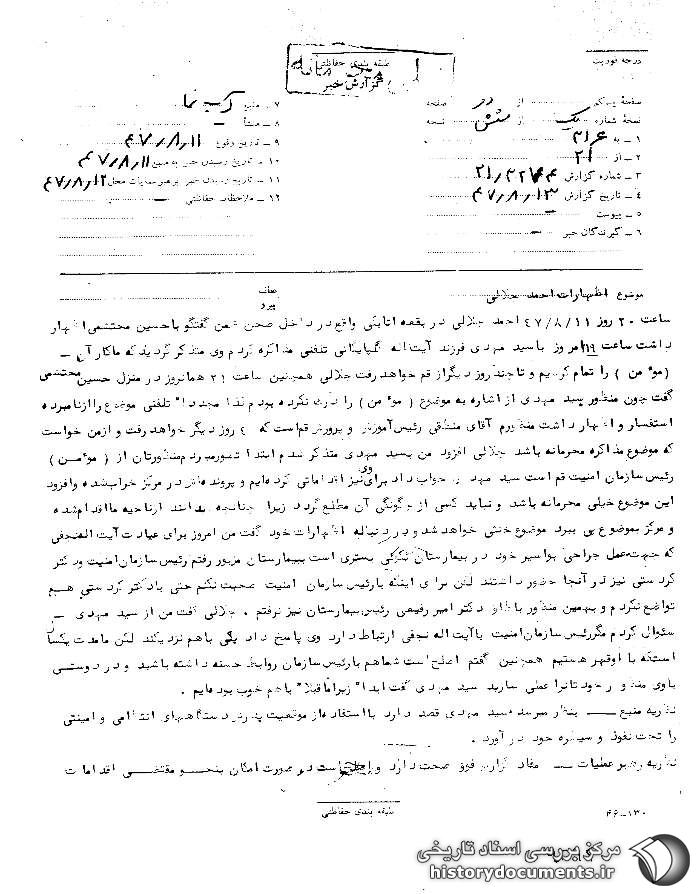 درجه فوریت
طبقه بندی حفاظتی
گزارش خبر
صفحه یکم از دو صفحه
نسخه شماره یک از شش نسخه
۱ ـ به ۳۱۶
۲ ـ از ۲۱
۳ ـ شماره گزارش
۴ ـ تاریخ گزارش ۴۷/۸/۱۳
۵ ـ پیوست ـ
۶ ـ گیرندگان خبر ـ
۷ ـ منبع
۸ ـ منشأ ـ
۹ ـ تاریخ وقوع ۴۷/۸/۱۱
۱۰ ـ تاریخ رسیدن خبر به منبع ۴۷/۸/۱۱
۱۱ ـ تاریخ رسیدن خبر برهبر عملیات محل ۴۷/۸/۱۲
۱۲ ـ ملاحظات حفاظتی ـ
موضوع اظهارات احمد جلالی
عطف
پیرو
ساعت ۲۰ روز ۴۷/۸/۱۱ احمد جلالی در بقعه اتابکی واقع در داخل صحن ضمن گفتگو با حسین محتشمی اظهار
داشت ساعت ۱۹ امروز با سید مهدی فرزند آیت‌اله گلپایگانی تلفنی مذاکره کردم وی متذکر گردید که ما کار آن ـ
(موءمن) را تمام کردیم و تا چند روز دیگر از قم خواهد رفت جلالی همچنین ساعت ۲۱ همانروز در منزل حسین محتشمی
گفت چون منظور سید مهدی از اشاره به موضوع (موءمن) را درک نکرده بودم لذا مجددا" تلفنی موضوع را از نامبرده
استفسار و اظهار داشت منظورم آقای منطقی رئیس آموزش و پرورش قم است که روز دیگر خواهد رفت و از من خواست
که موضوع مذاکره محرمانه باشد جلالی افزود من بسید مهدی متذکر شدم ابتدا تصور میبردم منظورتان از (موءمن)
رئیس سازمان امنیت قم است سید مهدی جواب داد برای وی نیز اقداماتی کرده‌ایم و پرونده‌اش در مرکز خراب شده وافزود
این موضوع خیلی محرمانه باشد و نباید کسی از چگونگی آن مطلع گردد زیرا چنانچه بدانند از ناحیه ما اقدام شده
و مرکز بموضوع پی ببرد موضوع خنثی خواهد شد و در دنباله اظهارات خود گفت من امروز برای عیادت آیت اله نجفی
که جهت عمل جراحی بواسیر خود در بیمارستان نکوئی بستری است ببیمارستان مزبور رفتم رئیس سازمان امنیت و دکتر
کردستی نیز در آنجا حضور داشتند لکن برای اینکه با رئیس سازمان امنیت صحبت نکنم حتی با دکتر کردستی هم
تواضع نکردم و بهمین منظور باطاق دکتر امیر رفیعی رئیس بیمارستان نیز نرفتم . جلالی گفت من از سید مهدی ـ
سئوال کردم مگر رئیس سازمان امنیت با آیت اله نجفی ارتباط دارد وی پاسخ داد بلی باهم نزدیکند لکن ما مدت یکسال
است که با او قهر هستیم همچنین گفتم اصلح است شما هم با رئیس سازمان روابط حسنه داشته باشید و در دوستی
با وی منظور خود را عملی سازید سید مهدی گفت ابدا" زیرا ما قبلا" باهم خوب بوده‌ایم .
نظریه منبع ـ بنظر میرسد سید مهدی قصد دارد با استفاده از موقعیت پدرش دستگاههای انتظامی و امنیتی
را تحت نفوذ و سیطره خود در آورد .
نظریه رهبر عملیات ـ مفاد گزارش فوق صحت دارد و است در صورت امکان بنحو مقتضی اقدامات
طبقه بندی حفاظتی
۴۶-۱۳۰
مرکز بررسی اسناد تاریخی
historydocuments.ir